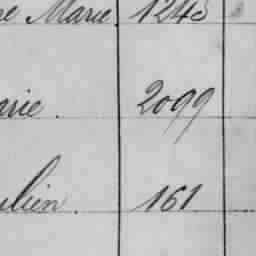 ne Marie. 1245
arie. 2099
ulien. 161